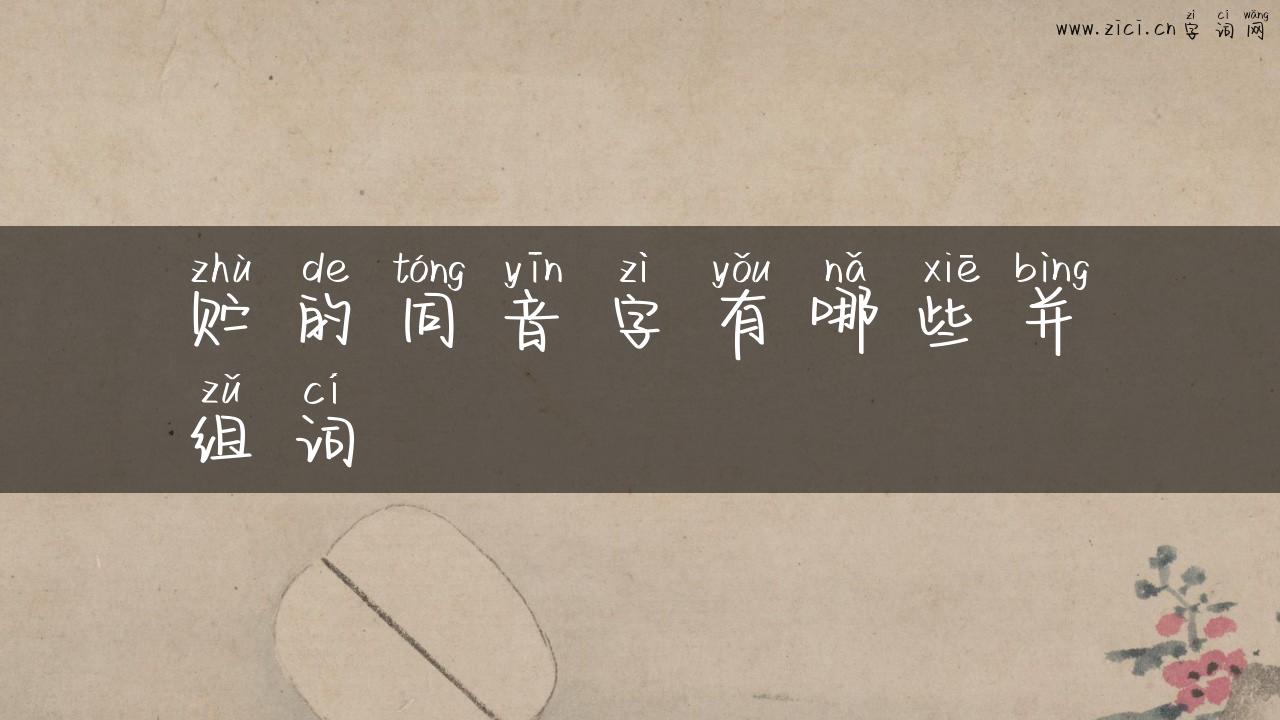 zì cí wǎng
www.zici.cn字词网
zhù de tóng yīn zì yǒu nǎ xiē bìng
贮的同音字有哪些并
zǔ cí
组词